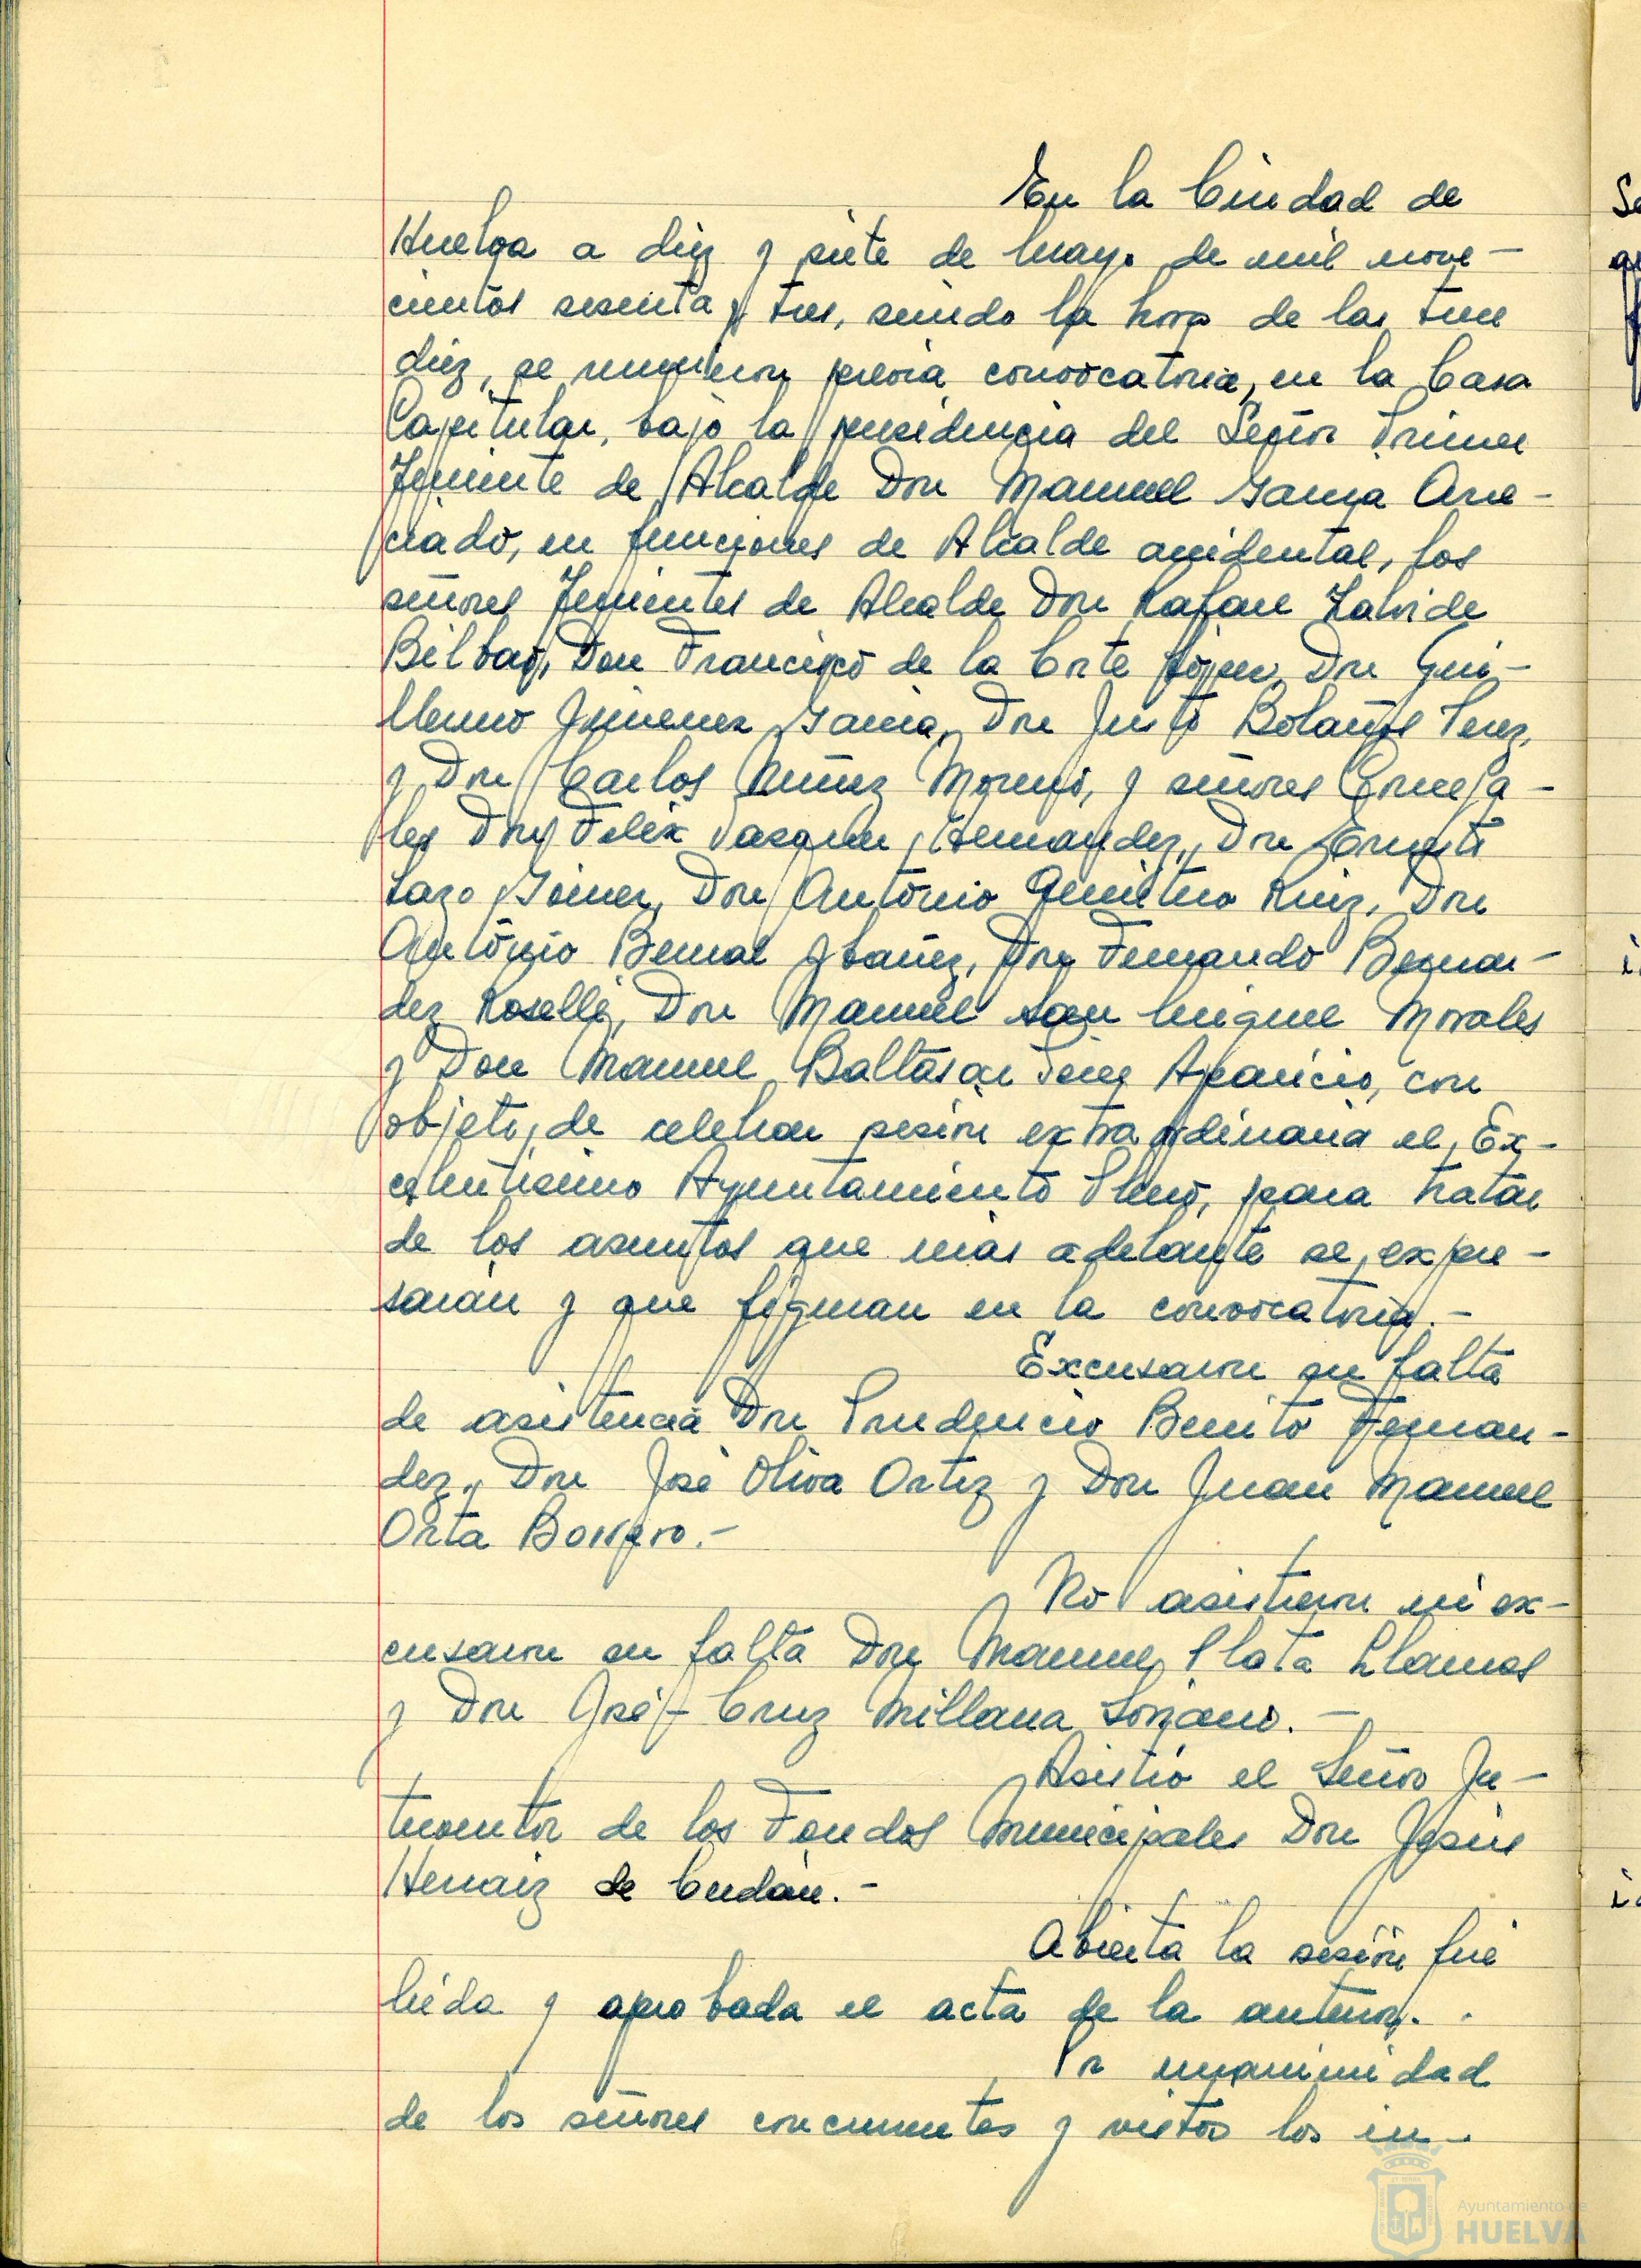 En la Ciudad de
Huelva a diez y siete de Mayo de mil nove-
cientos sesenta y tres, siendo la hora de las trece
diez, se reunieron previa convocatoria, en la Casa
Capitular, bajo la presidencia del Señor Primer
Teniente de Alcalde Don Manuel Garcia Arre-
ciado, en funciones de Alcalde accidental, los
señores Tenientes de Alcalde Don Rafael Zalvide
Bilbao, Don Francisco de la Corte López, Don Gui-
llermo Jimenez Garcia, Don Justo Bolaños Perez,
y Don Carlos Núñez Moreno, y señores Conceja-
les Don Felix Vazquez Hernandez, Don Ernesto
Lazo Giner, Don Antonio Quintero Ruiz, Don
Antonio Bernal Ybañez, Don Fernando Bernar-
dez Roselló, Don Manuel San Miguel Morales
y Don Manuel Baltasar Aparicio, con
objeto de celebrar sesión extraordinaria el Ex-
celentisimo Ayuntamiento Pleno, para tratar
de los asuntos que más adelante se expre-
sarán y que figuran en la convocatoria.-
Excusaron su falta
de asistencia Don Prudencio Benito Fernan-
dez, Don José Oliva Ortiz y Don Juan Manuel
Orta Borrero.-
No asistieron ni ex-
cusaron su falta Don Manuel Plata Llamas
y Don José-Cruz Millana Lozano.-
Asistió el Señor In-
terventor de los Fondos Municipales Don Jesús
Hernaiz de Cerdán.-
Abierta la sesión fue
leida y aprobada el acta de la anterior.-
Por unanimidad
de los señores concurrentes y vistos los in-
Ayuntamiento de
HUELVA